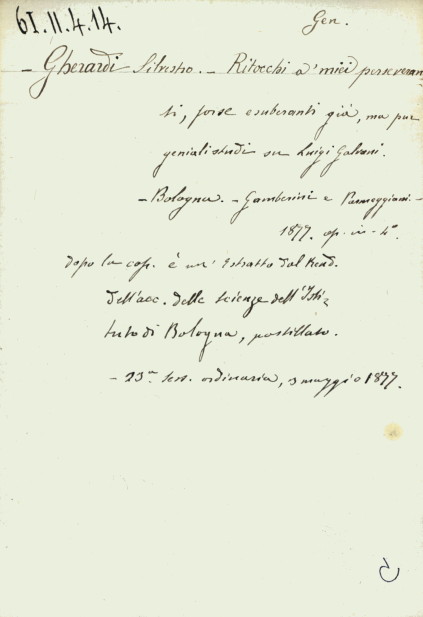 61.II.4.14.
Gen.
- Gherardi Silvestro. - Ritocchi a' miei perseveran
ti, forse esuberanti già, ma pur
geniali studi su Luigi Galvani.
- Bologna. - Gamberini e Parmeggiani. -
1877. op. in - 4°.
dopo la cop. è un' Estratto dal Rend.
dell'acc. delle scienze dell'Isti=
tuto di Bologna, postillato.
- 23ª sess. ordinaria, 3 maggio 1877.